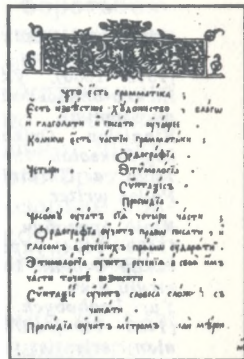 Что̀ є҆́сть грамма́тїка ;
Є҆́сть и҆звѣ́стное хꙋдо́жество благѡ
и҆ глаго́лати и҆ писа́ти оу҆ча́щее
Коли́кѡ є҆́сть часті́й грамма́тїки ;
Ѻ҆рѳогра́фїа
Четы́ри Э҆тѷмоло́гїа
Сѷ́нтаѯїсъ
Просѡ́дїа
Чесомꙋ̀ оу҆́чатъ сїѧ̑ четы́ри ча̑сти ;
Ѻ҆рѳогра́фїа оу҆чи́тъ пра́вѡ писа́ти , и҆
гла́сомъ в рече́нїихъ пра́вѡ оу҆дарѧ́ти .
Э҆тѷмоло́гїа оу҆чи́тъ рече́нїѧ в своѧ̑ и҆̀мъ
ча̑сти то́чнѣ возноси́ти
Сѷ́нтаѯїсъ оу҆чи́тъ словеса̀ сло́жнѣ съ
чинѧ́ти
Просѡ́дїа оу҆чи́тъ ме́тромъ